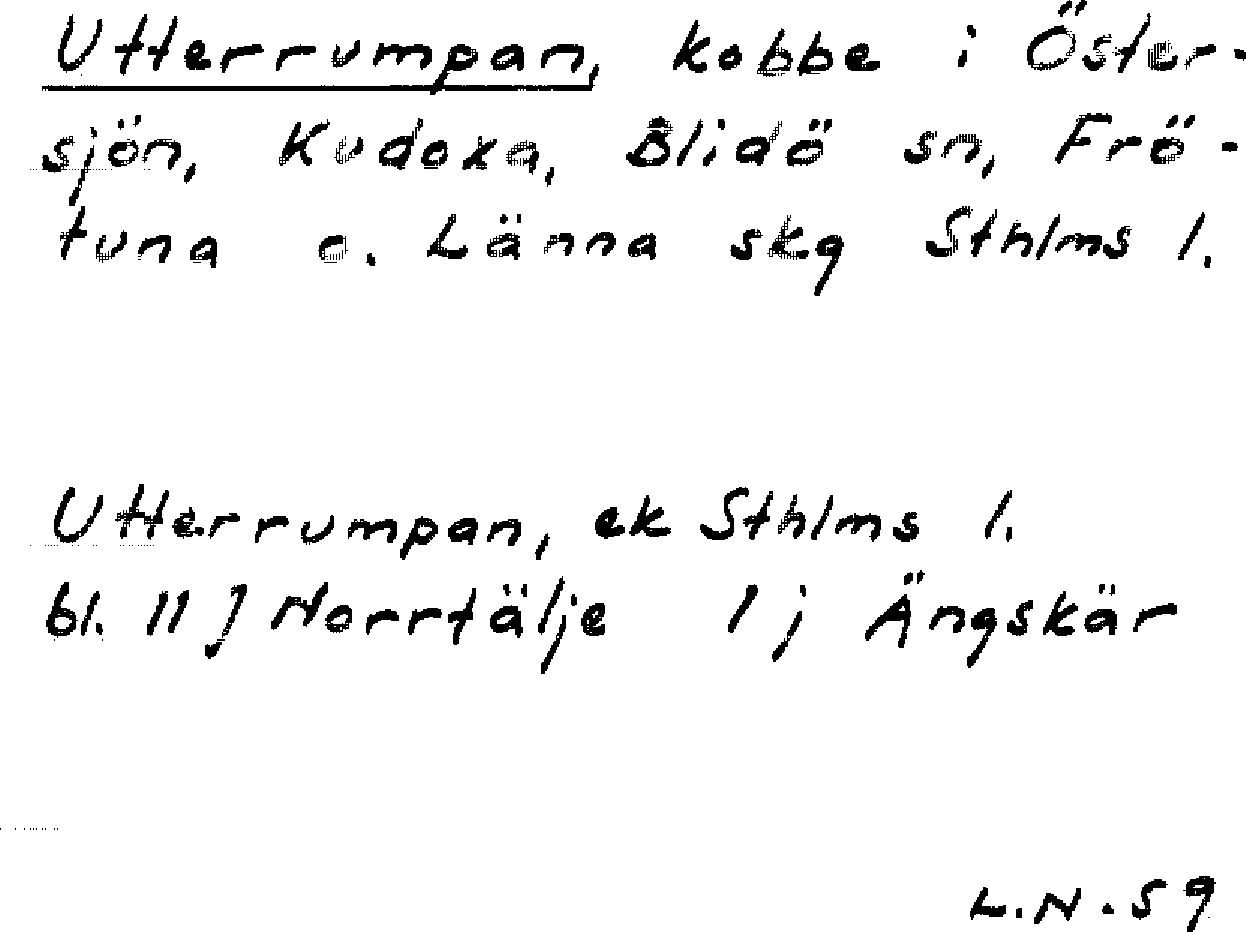 Utterrumpan, kobbe i Öster-
sjön, Kudoxa, Blidö sn, Frö-
tuna o. Länna skg Sthlms l.
Utterrumpan, ek Sthlms l.
bl. 11 J Norrtälje 1 j Ängskär
L.N. 59